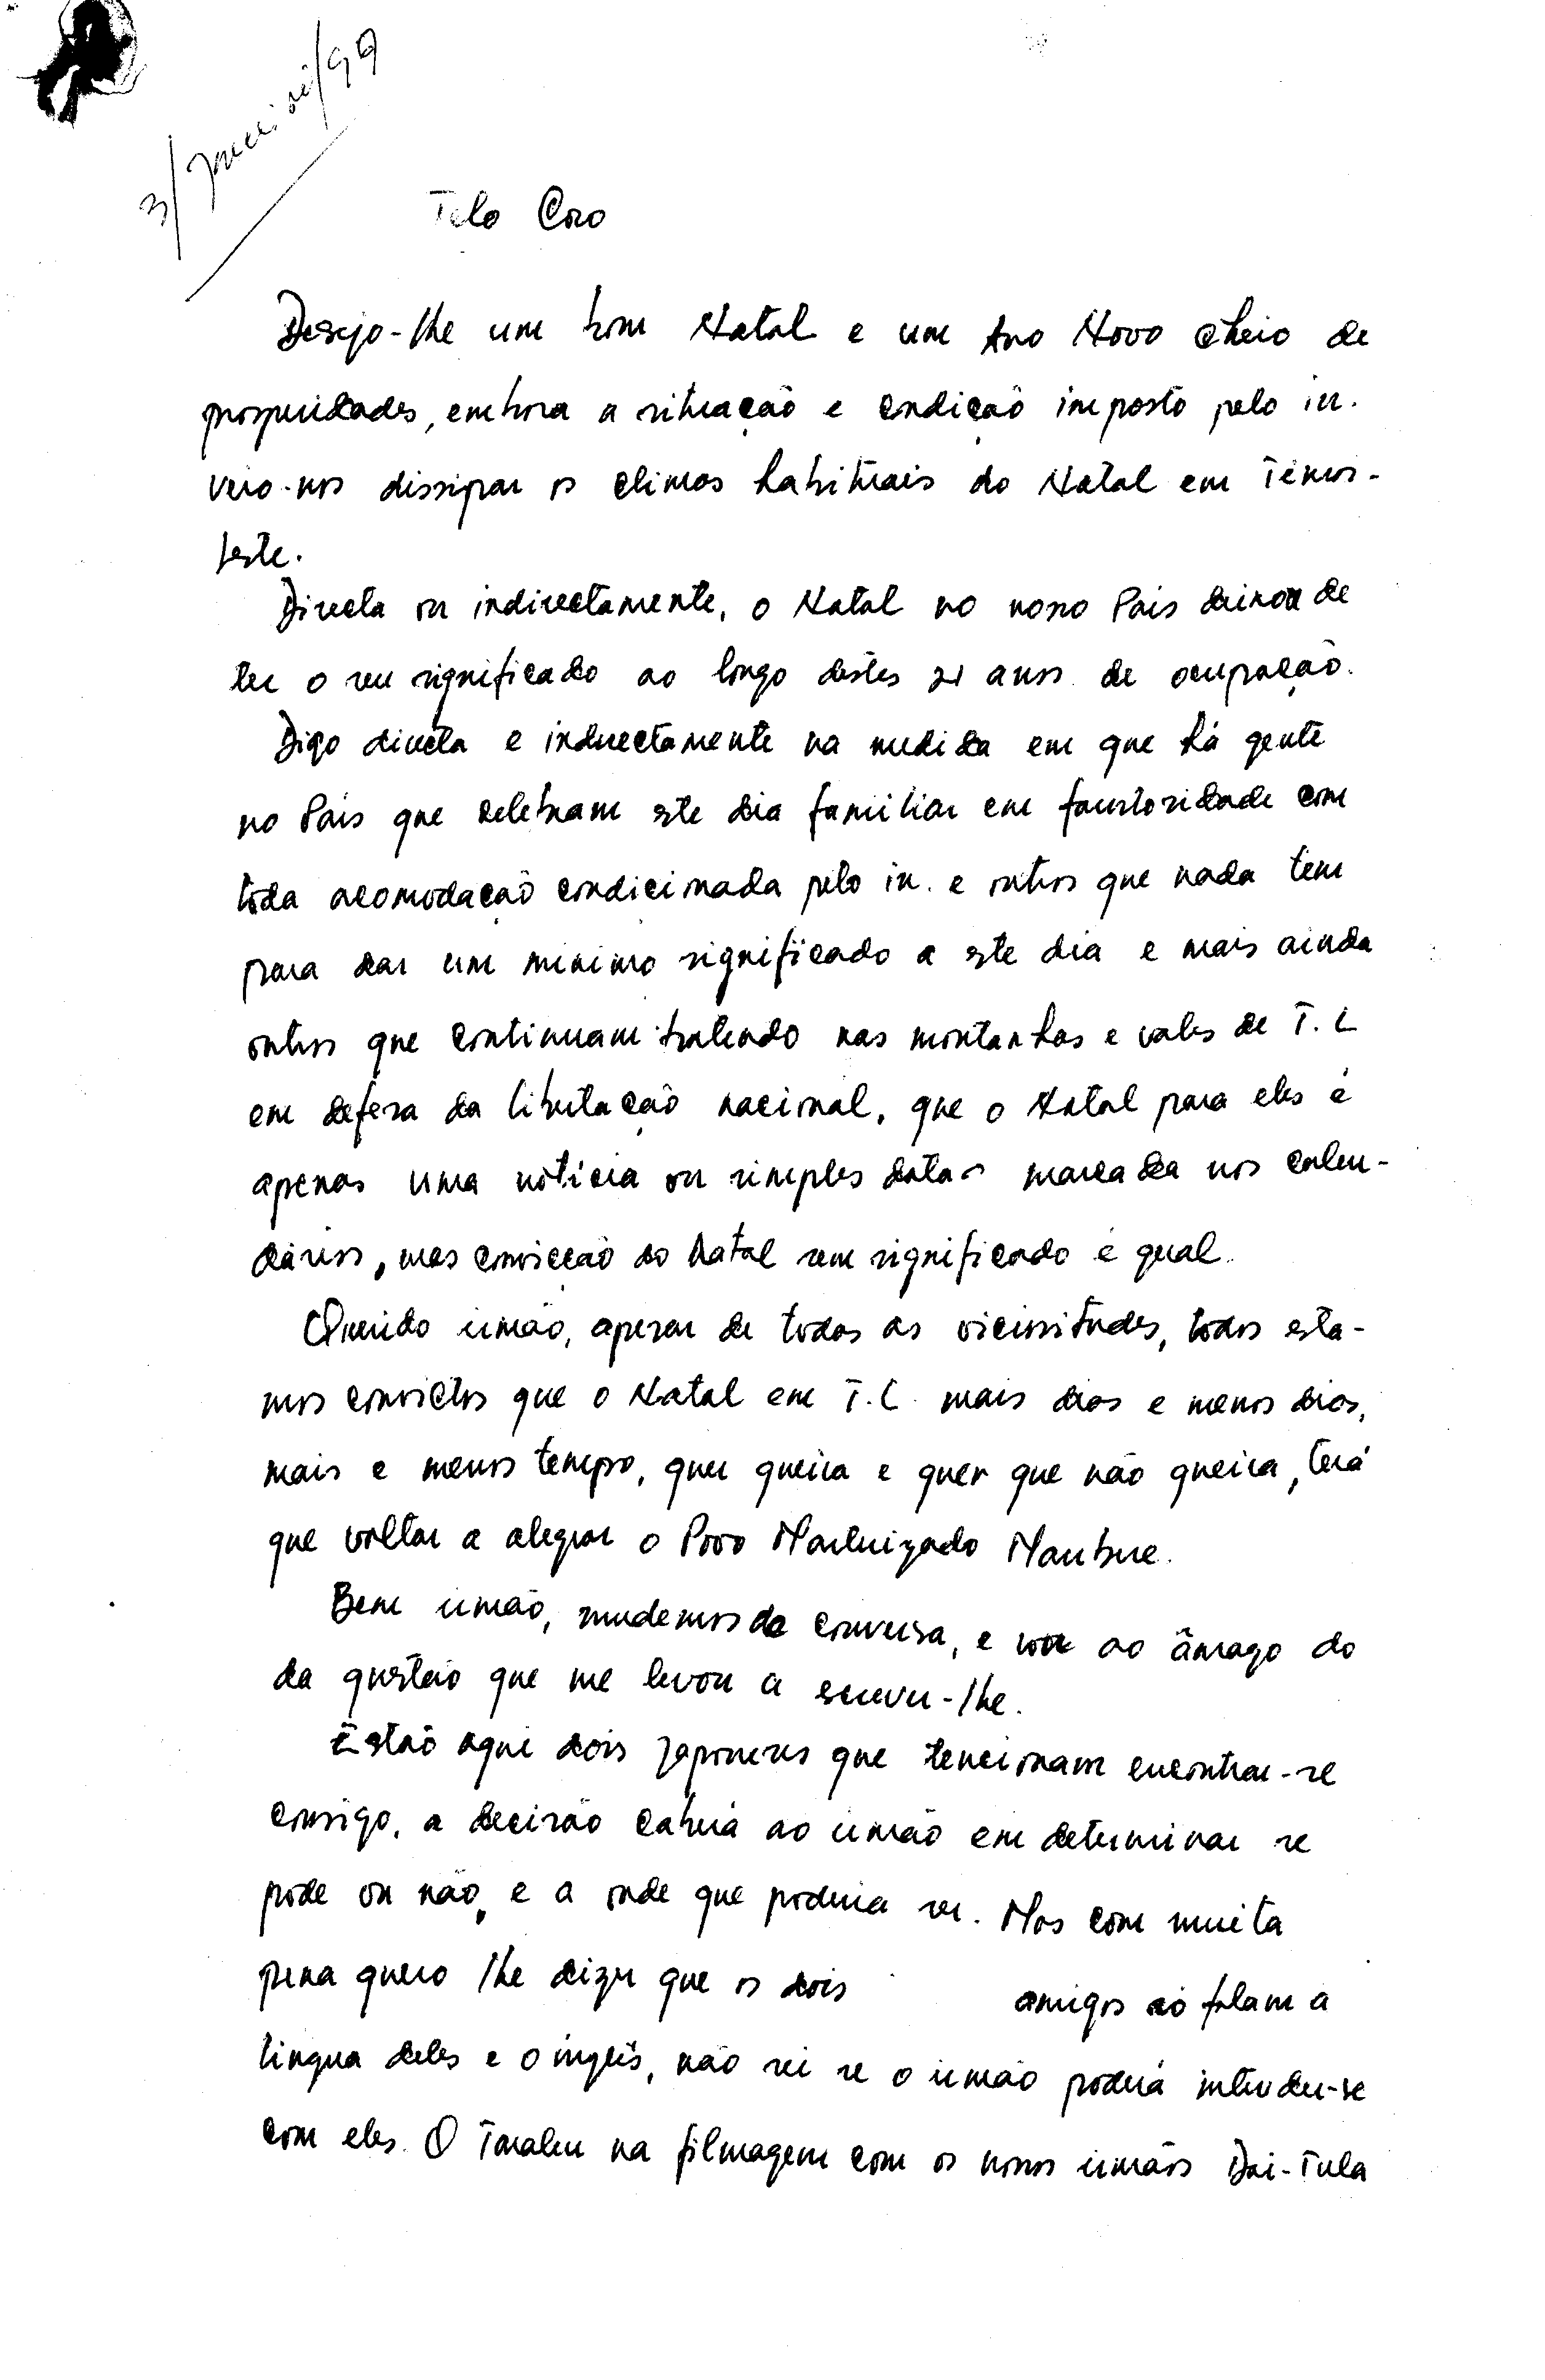 3/Janeiro/99
Telo Coro
Desejo-lhe um bom Natal e um Ano Novo cheio de
prosperidades, embora a situação e condição imposto pelo in.
veio-nos dissipar os climas habituais do Natal em Timor-
leste.
Directa ou indirectamente, o Natal no nosso País deixou de
ter o seu significado ao longo destes 21 anos de ocupação.
Digo directa e indirectamente na medida em que há gente
no País que celebram este dia familiar em faustosidade com
toda acomodação condicionada pelo in. e outros que nada tem
para dar um minimo significado a este dia e mais ainda
outros que continuam batendo nas montanhas e vales de T. L
em defesa da libertação nacional, que o Natal para eles é
apenas uma notícia ou simples data marcada nos calen-
dários, mas convicção do Natal sem significado é qual.
Querido irmão, apesar de todas as vicissitudes, todos esta-
mos convictos que o Natal em T.L. mais dias e menos dias,
mais e menos tempo, quer queira e quer que não queira, terá
que voltar a alegrar o Povo Martirizado Maubere.
Bem irmão, mudemos de conversa, e vou ao âmago do
da questão que me levou a escrever-lhe.
Estão aqui dois japoneses que tencionam encontrar-se
consigo, a decisão caberá ao irmão em determinar se
pode ou não, e a onde que poderia ser. Mas com muita
pena quero lhe dizer que os dois amigos só falam a
lingua deles e o inglês, não sei se o irmão poderá intender-se
com eles. O na filmagem com os nossos irmãos Dai-Tula